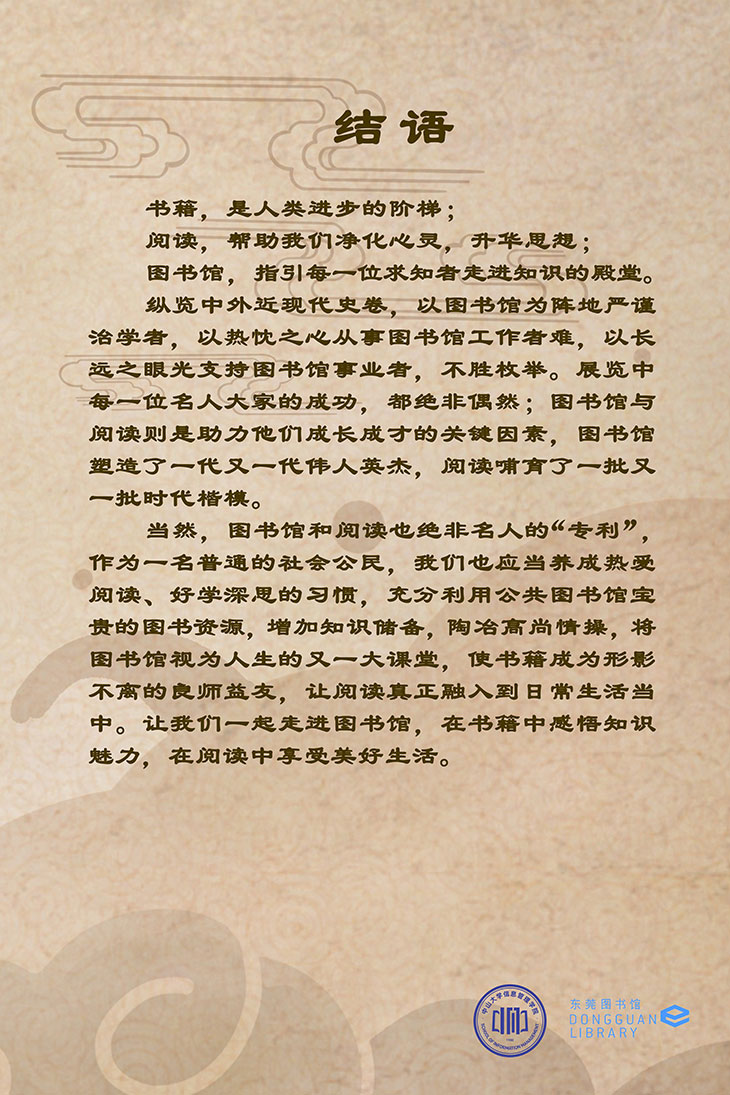 结语
书籍，是人类进步的阶梯；
阅读，帮助我们净化心灵，升华思想；
图书馆，指引每一位求知者走进知识的殿堂。
纵览中外近现代史卷，以图书馆为阵地严谨
治学者，以热忱之心从事图书馆工作者难，以长
远之眼光支持图书馆事业者，不胜枚举。展览中
每一位名人大家的成功，都绝非偶然；图书馆与
阅读则是助力他们成长成才的关键因素，图书馆
塑造了一代又一代伟人英杰，阅读哺育了一批又
一批时代楷模。
当然，图书馆和阅读也绝非名人的“专利”，
作为一名普通的社会公民，我们也应当养成热爱
阅读、好学深思的习惯，充分利用公共图书馆宝
贵的图书资源，增加知识储备，陶冶高尚情操，将
图书馆视为人生的又一大课堂，使书籍成为形影
不离的良师益友，让阅读真正融入到日常生活当
中。让我们一起走进图书馆，在书籍中感悟知识
魅力，在阅读中享受美好生活。
中山大学信息管理学院
SCHOOL OF INFORMATION MANAGEMENT
东莞图书馆
DONGGUAN
LIBRARY